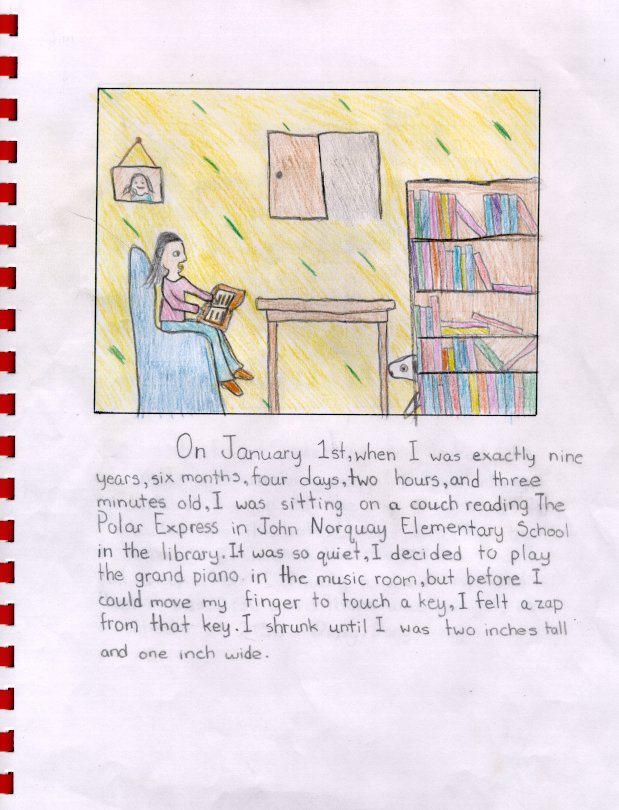 On January 1st, when I was exactly nine
years, six months, four days, two hours, and three
minutes old, I was sitting on a couch reading The
Polar Express in John Norquay Elementary School
in the library. It was so quiet, I decided to play
the grand piano in the music room, but before I
could move my finger to touch a key, I felt a zap
from that key. I shrunk until I was two inches tall
and one inch wide.